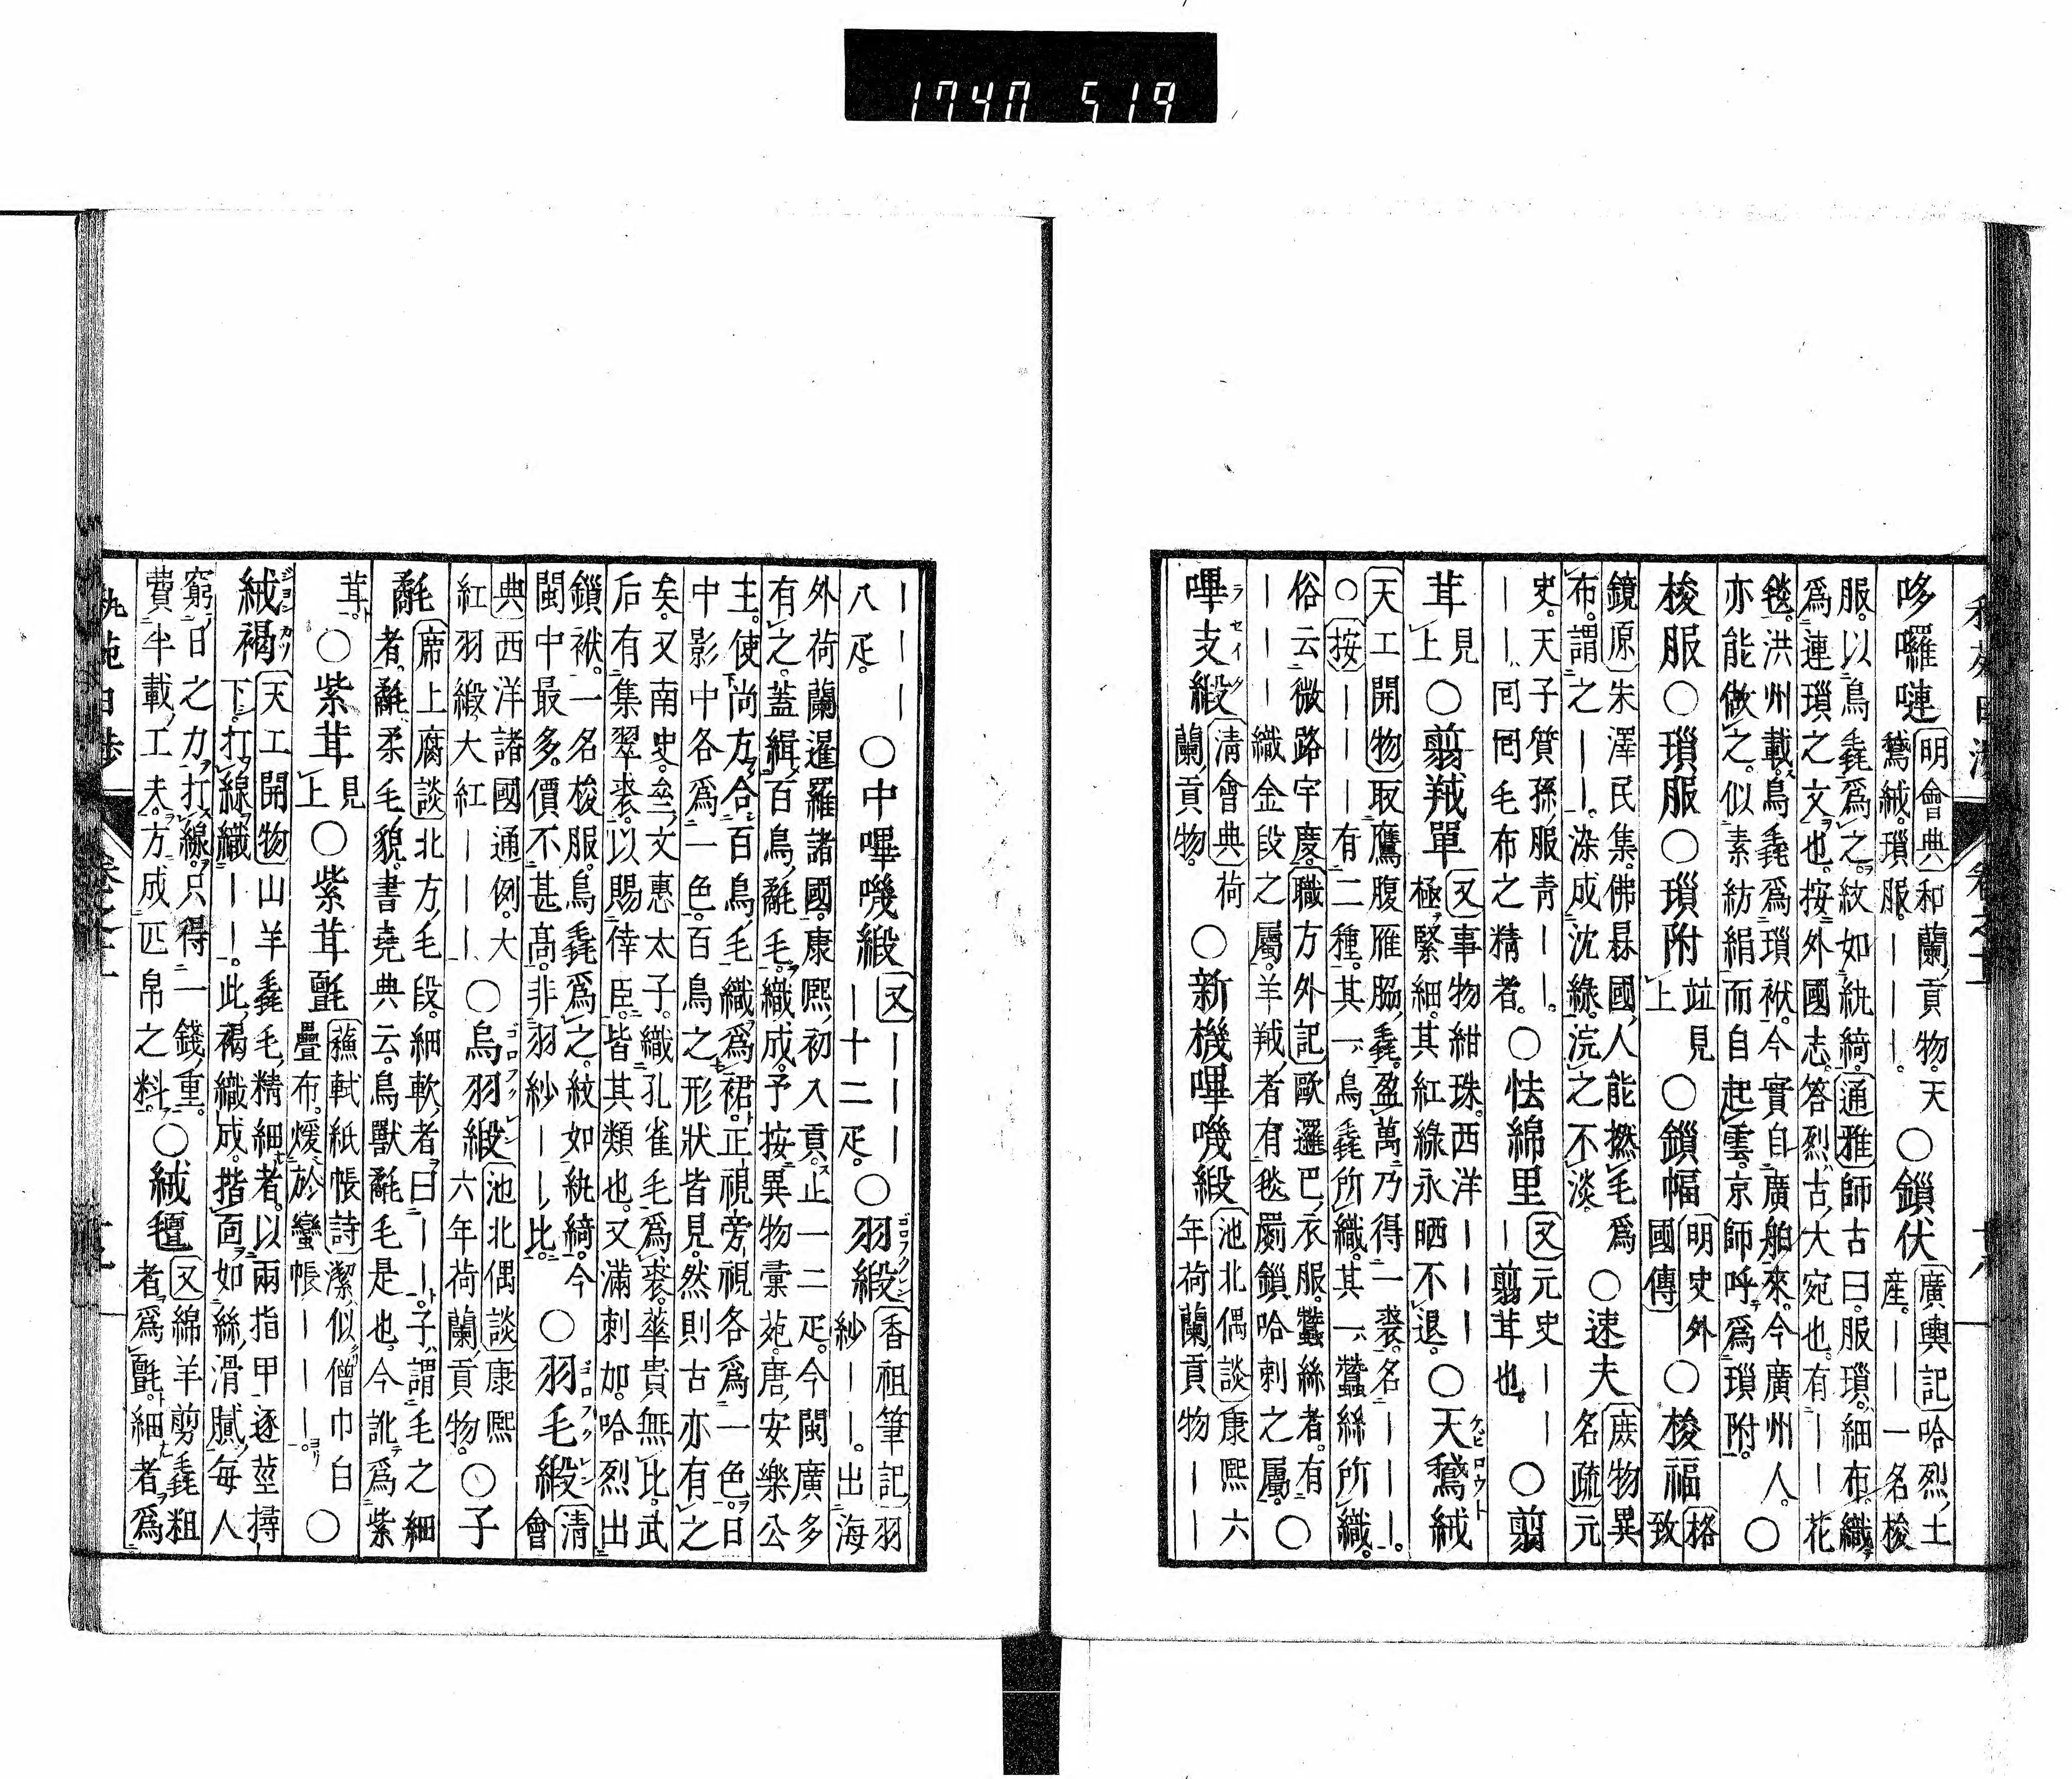 1740 519
哆囉嗹 明會典 和蘭貢物。天鵞絨。瑣服。———。 ○鎖伏 廣輿記 哈烈土産。——一名梭
服。以鳥毳爲之。紋如紈綺。通雅 師古曰。服瑣。細布。織爲連瑣之文也。按外國志。答烈古大宛也。有—花
毯。洪州載。鳥毳爲瑣袱。今實自廣舶來。今廣州人亦能做之。似素紡絹而自起雲。京師呼爲瑣附。 ○
梭服 ○瑣服 ○瑣附 竝見上 ○鎖幅 明史外國傳 ○梭福 格致
鏡原 朱澤民集。佛菻國人能撚毛爲布。謂之——。染成沈綠。浣之不淡。 ○速夫 庶物異名疏 元
史。天子質孫服青——。——囘囘毛布之精者。 ○怯綿里 又 元史——翦茸也。 ○翦
茸 見上 ○翦羢單 又 事物紺珠。西洋———極緊細。其紅綠永晒不退。 ○天鵞絨 ケビロウト
天工開物 取鷹腹雁脇毳。盈萬乃得一裘。名———。○按 ————有二種。其一鳥毳所織。其一蠶絲所織。
俗云微路宇慶。職方外記 歐邏巴衣服。蠶絲者。有———織金段之屬。羊羢者有毯罽鎖哈剌之屬。 ○
嗶支緞 ラセイタ 淸會典 荷蘭貢物。 ○新機嗶嘰緞 池北偶談 康熙六年荷蘭貢物——
———— ○中嗶嘰緞 又 ————十二疋。 ○羽緞 ゴロフクレン 香祖筆記 羽紗——。出海
八疋。
外荷蘭暹羅諸國。康熙初入貢。止一二疋。今閩廣多有之。蓋緝百鳥毳毛織成。予按異物彙苑。唐安樂公
主。使尚方合百鳥毛織爲裙。正視旁視各爲一色。日中影中各爲一色。百鳥之形狀皆見。然則古亦有之
矣。又南史。文惠太子織孔雀毛爲裘。華貴無比。武后有集翠裘。以賜倖臣。皆其類也。又滿剌加。哈烈出
鎖袱。一名梭服。鳥毳爲之。紋如紈綺。今閩中最多。價不甚高。非羽紗——比。 ○羽毛緞 ゴロフクレン 淸會
典 西洋諸國通例。大紅羽緞、大紅—— ○烏羽緞 ゴロフクレン 池北偶談 康熙六年荷蘭貢物。 ○子
毳 席上腐談 北方毛段。細軟者曰——。子、謂毛之細者。毳柔毛貌。書堯典云。鳥獸毳毛是也。今訛爲紫
茸。 ○紫茸 見上 ○紫茸氎 蘇軾紙帳詩 潔似僧巾白疊布。煖於蠻帳———。 ○
絨褐 ジヨンカツ 天工開物 山羊毳毛精細者。以兩指甲逐莖撏下。打線織——。此褐織成。揩面如絲滑膩。每人
窮日之力打線。只得一錢重。費半載工夫。方成匹帛之料。 ○絨氊 又 綿羊剪毳粗者爲氈。細者爲